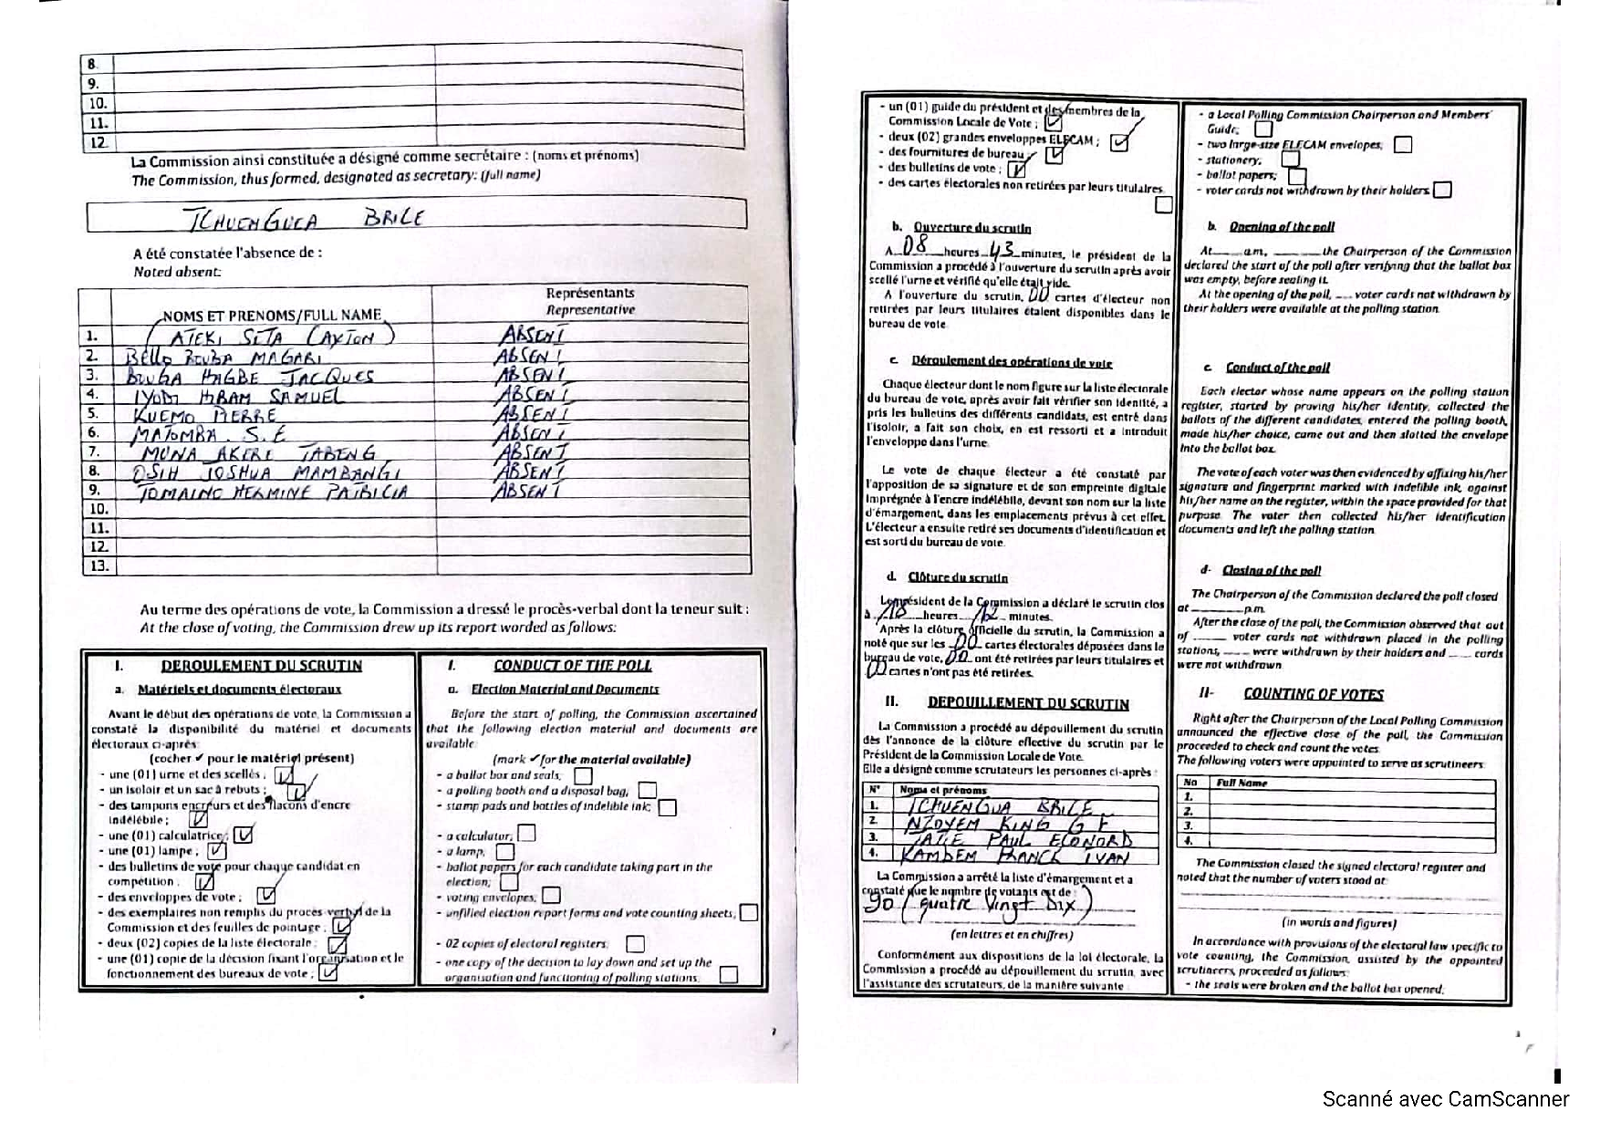 8.
9.
10.
11.
12.
La Commission ainsi constituée a désigné comme secrétaire : (noms et prénoms)
The Commission, thus formed, designated as secretary: (full name)
TCHUENGUEA BRICE
A été constatée l'absence de :
Noted absent:
NOMS ET PRENOMS/FULL NAME
Représentants
Representative
1. (ATEKI SETA CAXTON) ABSENT
2. BELLO BOUBA MAGARI ABSENT
3. BOUGA HAGBE JACQUES ABSENT
4. IYODI HIRAM SAMUEL ABSENT
5. KUEMO PIERRE ABSENT
6. MATOMBA. S.E ABSENT
7. MUNA AKERE TABENG ABSENT
8. OSIH JOSHUA MAMBANGI ABSENT
9. TOMAINO HERMINE PATRICIA ABSENT
10.
11.
12.
13.
Au terme des opérations de vote, la Commission a dressé le procès-verbal dont la teneur suit :
At the close of voting, the Commission drew up its report worded as follows:
I. DEROULEMENT DU SCRUTIN
a. Matériels et documents électoraux
Avant le début des opérations de vote, la Commission a
constaté la disponibilité du matériel et documents
électoraux ci-après:
(cocher ✓ pour le matériel présent)
- une (01) urne et des scellés ; ☑
- un isoloir et un sac à rebuts ; ☑
- des tampons encreurs et des flacons d'encre
indélébile ; ☑
- une (01) calculatrice ; ☑
- une (01) lampe ; ☑
- des bulletins de vote pour chaque candidat en
compétition ; ☑
- des enveloppes de vote ; ☑
- des exemplaires non remplis du procès verbal de la
Commission et des feuilles de pointage ; ☑
- deux (02) copies de la liste électorale ; ☑
- une (01) copie de la décision fixant l'organisation et le
fonctionnement des bureaux de vote ; ☑
I. CONDUCT OF THE POLL
a. Election Material and Documents
Before the start of polling, the Commission ascertained
that the following election material and documents are
available:
(mark ✓ for the material available)
- a ballot box and seals; ☐
- a polling booth and a disposal bag, ☐
- stamp pads and bottles of indelible ink; ☐
- a calculator; ☐
- a lamp, ☐
- ballot papers for each candidate taking part in the
election; ☐
- voting envelopes; ☐
- unfilled election report forms and vote counting sheets; ☐
- 02 copies of electoral registers; ☐
- one copy of the decision to lay down and set up the
organisation and functioning of polling stations. ☐
- un (01) guide du président et des membres de la
Commission Locale de Vote ; ☑
- deux (02) grandes enveloppes ELECAM ; ☑
- des fournitures de bureau ; ☑
- des bulletins de vote ; ☑
- des cartes électorales non retirées par leurs titulaires.
☐
b. Ouverture du scrutin
A 08 heures 43 minutes, le président de la
Commission a procédé à l'ouverture du scrutin après avoir
scellé l'urne et vérifié qu'elle était vide.
A l'ouverture du scrutin, 00 cartes d'électeur non
retirées par leurs titulaires étaient disponibles dans le
bureau de vote.
c. Déroulement des opérations de vote
Chaque électeur dont le nom figure sur la liste électorale
du bureau de vote, après avoir fait vérifier son identité, a
pris les bulletins des différents candidats, est entré dans
l'isoloir, a fait son choix, en est ressorti et a introduit
l'enveloppe dans l'urne.
Le vote de chaque électeur a été constaté par
l'apposition de sa signature et de son empreinte digitale
imprégnée à l'encre indélébile, devant son nom sur la liste
d'émargement, dans les emplacements prévus à cet effet.
L'électeur a ensuite retiré ses documents d'identification et
est sorti du bureau de vote.
d. Clôture du scrutin
Le président de la Commission a déclaré le scrutin clos
à 18 heures 12 minutes.
Après la clôture officielle du scrutin, la Commission a
noté que sur les 00 cartes électorales déposées dans le
bureau de vote, 00 ont été retirées par leurs titulaires et
00 cartes n'ont pas été retirées.
II. DEPOUILLEMENT DU SCRUTIN
La Commission a procédé au dépouillement du scrutin
dès l'annonce de la clôture effective du scrutin par le
Président de la Commission Locale de Vote.
Elle a désigné comme scrutateurs les personnes ci-après :
N° Noms et prénoms
1. TCHUENGUA BRICE
2. NZOYEM KING G F
3. TATIE PAUL ECONORD
4. KAMDEM FRANCK IVAN
La Commission a arrêté la liste d'émargement et a
constaté que le nombre de votants est de :
90 (quatre Vingt Dix)
(en lettres et en chiffres)
Conformément aux dispositions de la loi électorale, la
Commission a procédé au dépouillement du scrutin, avec
l'assistance des scrutateurs, de la manière suivante :
- a Local Polling Commission Chairperson and Members'
Guide; ☐
- two large-size ELECAM envelopes; ☐
- stationery; ☐
- ballot papers; ☐
- voter cards not withdrawn by their holders. ☐
b. Opening of the poll
At____am, ____the Chairperson of the Commission
declared the start of the poll after verifying that the ballot box
was empty, before sealing it.
At the opening of the poll, ___ voter cards not withdrawn by
their holders were available at the polling station.
c. Conduct of the poll
Each elector whose name appears on the polling station
register, started by proving his/her identity, collected the
ballots of the different candidates, entered the polling booth,
made his/her choice, came out and then slotted the envelope
into the ballot box.
The vote of each voter was then evidenced by affixing his/her
signature and fingerprint marked with indelible ink, against
his/her name on the register, within the space provided for that
purpose. The voter then collected his/her identification
documents and left the polling station.
d- Closing of the poll
The Chairperson of the Commission declared the poll closed
at ________p.m.
After the close of the poll, the Commission observed that out
of _____ voter cards not withdrawn placed in the polling
stations, ____ were withdrawn by their holders and ____ cards
were not withdrawn.
II- COUNTING OF VOTES
Right after the Chairperson of the Local Polling Commission
announced the effective close of the poll, the Commission
proceeded to check and count the votes.
The following voters were appointed to serve as scrutineers:
No Full Name
1.
2.
3.
4.
The Commission closed the signed electoral register and
noted that the number of voters stood at:
(in words and figures)
In accordance with provisions of the electoral law specific to
vote counting, the Commission, assisted by the appointed
scrutineers, proceeded as follows:
- the seals were broken and the ballot box opened;
Scanné avec CamScanner